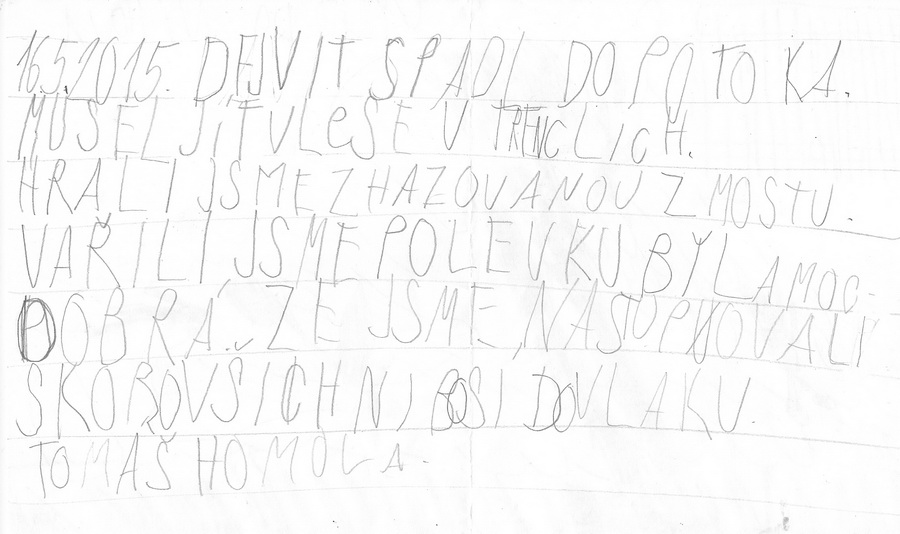 16.5.2015. DEJVIT SPADL DO POTOKA.
MUSEL JÍT V LeSE V TRENCLICH.
HRALI JSME ZHAZOVANOU Z MOSTU.
VAŘILI JSME POLEVKU BYLA MOC
DOBRÁ. ZE JSME NASTOPNOVALI
SKOROVŠICHNI BOSI DO VLAKU.
TOMAŠ HOMOLA.